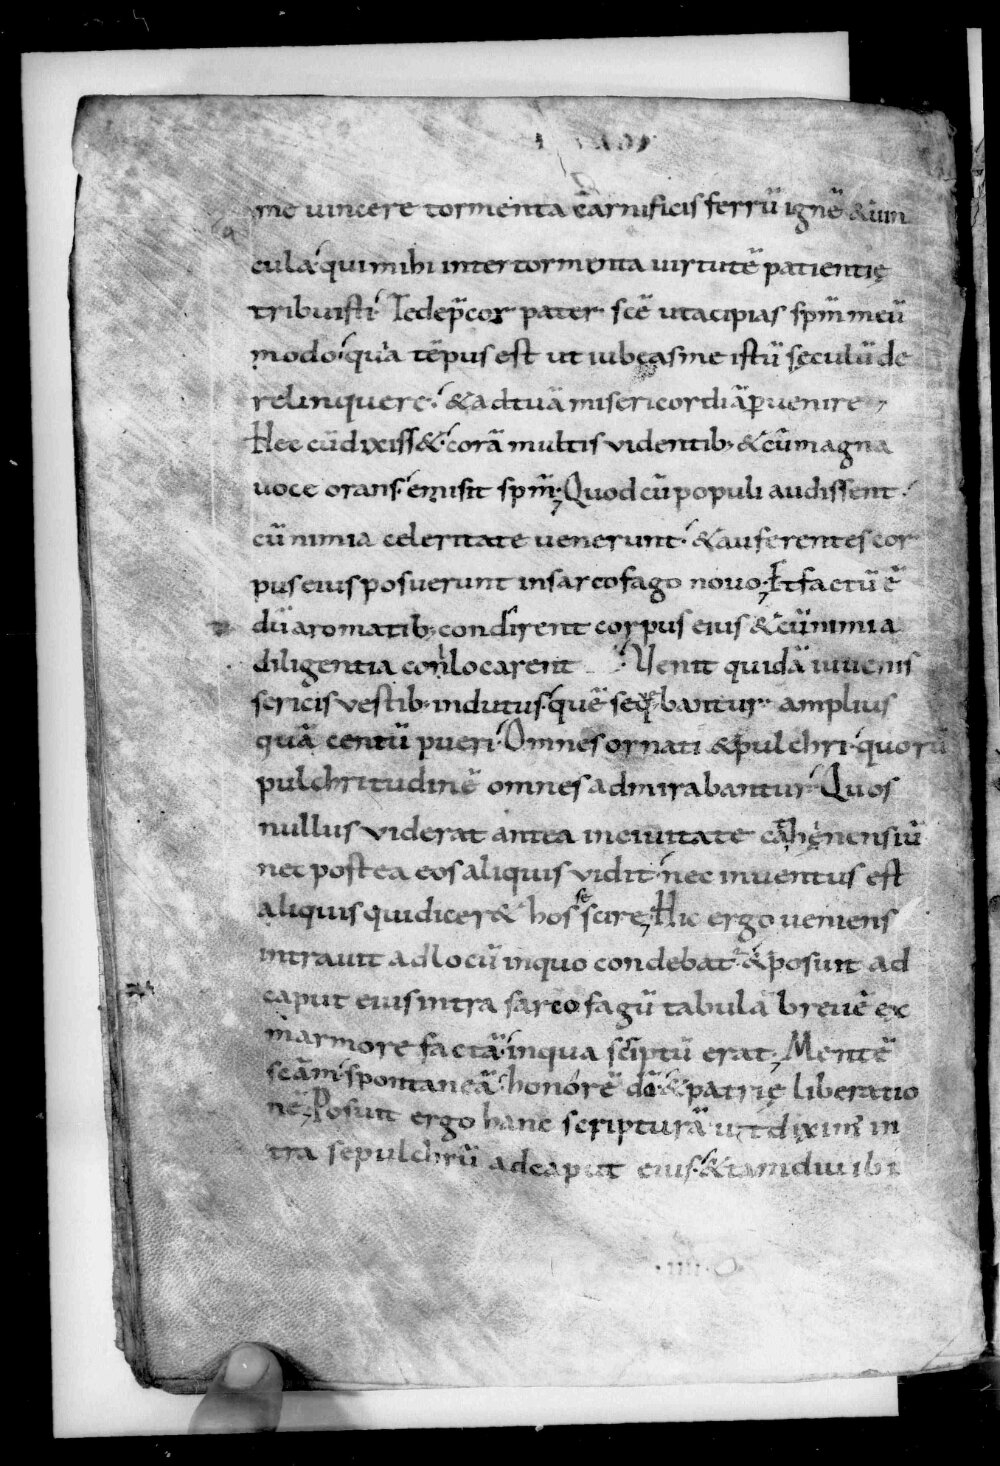 me uincere tormenta carnificis ferrū ignē & uin
cula· qui mihi inter tormenta uirtutē patientię
tribuisti· Te dep̄cor pater scē ut accipias sp̄m meū
modo· quia tēpus est ut iubeas me istū sęculū de
relinquere· & ad tuā misericordiā ꝑuenire
Hec cū dixiss&· corā multis videntib; & cū magna
uoce orans· emisit sp̄m; Quod cū populi audissent·
cū nimia celeritate uenerunt· & auferentes cor
pus eius posuerunt in sarcofago nouo; Et factū ē
dū aromatib; condirent corpus eius & cū nimia
diligentia conlocarent· Venit quidā iuuenis
sericis vestib; indutus· quē seq̨bantur amplius
quā centū pueri· Omnes ornati & pulchri· quorū
pulchritudinē omnes admirabantur· Quos
nullus viderat antea in ciuitate cathęnensiū
nec postea eos aliquis vidit· nec inuentus est
aliquis qui dicer& hos se scire; Hic ergo ueniens
intrauit ad locū in quo condebat̄· & posuit ad
caput eius intra sarcofagū tabulā breuē ex
marmore factā· in qua scriptū erat; Mentē
scām· spontaneā· honorē dō· & patrię liberatio
nē; Posuit ergo hanc scripturā ut dixim; in
tra sepulchrū ad caput eius· & tamdiu ibi